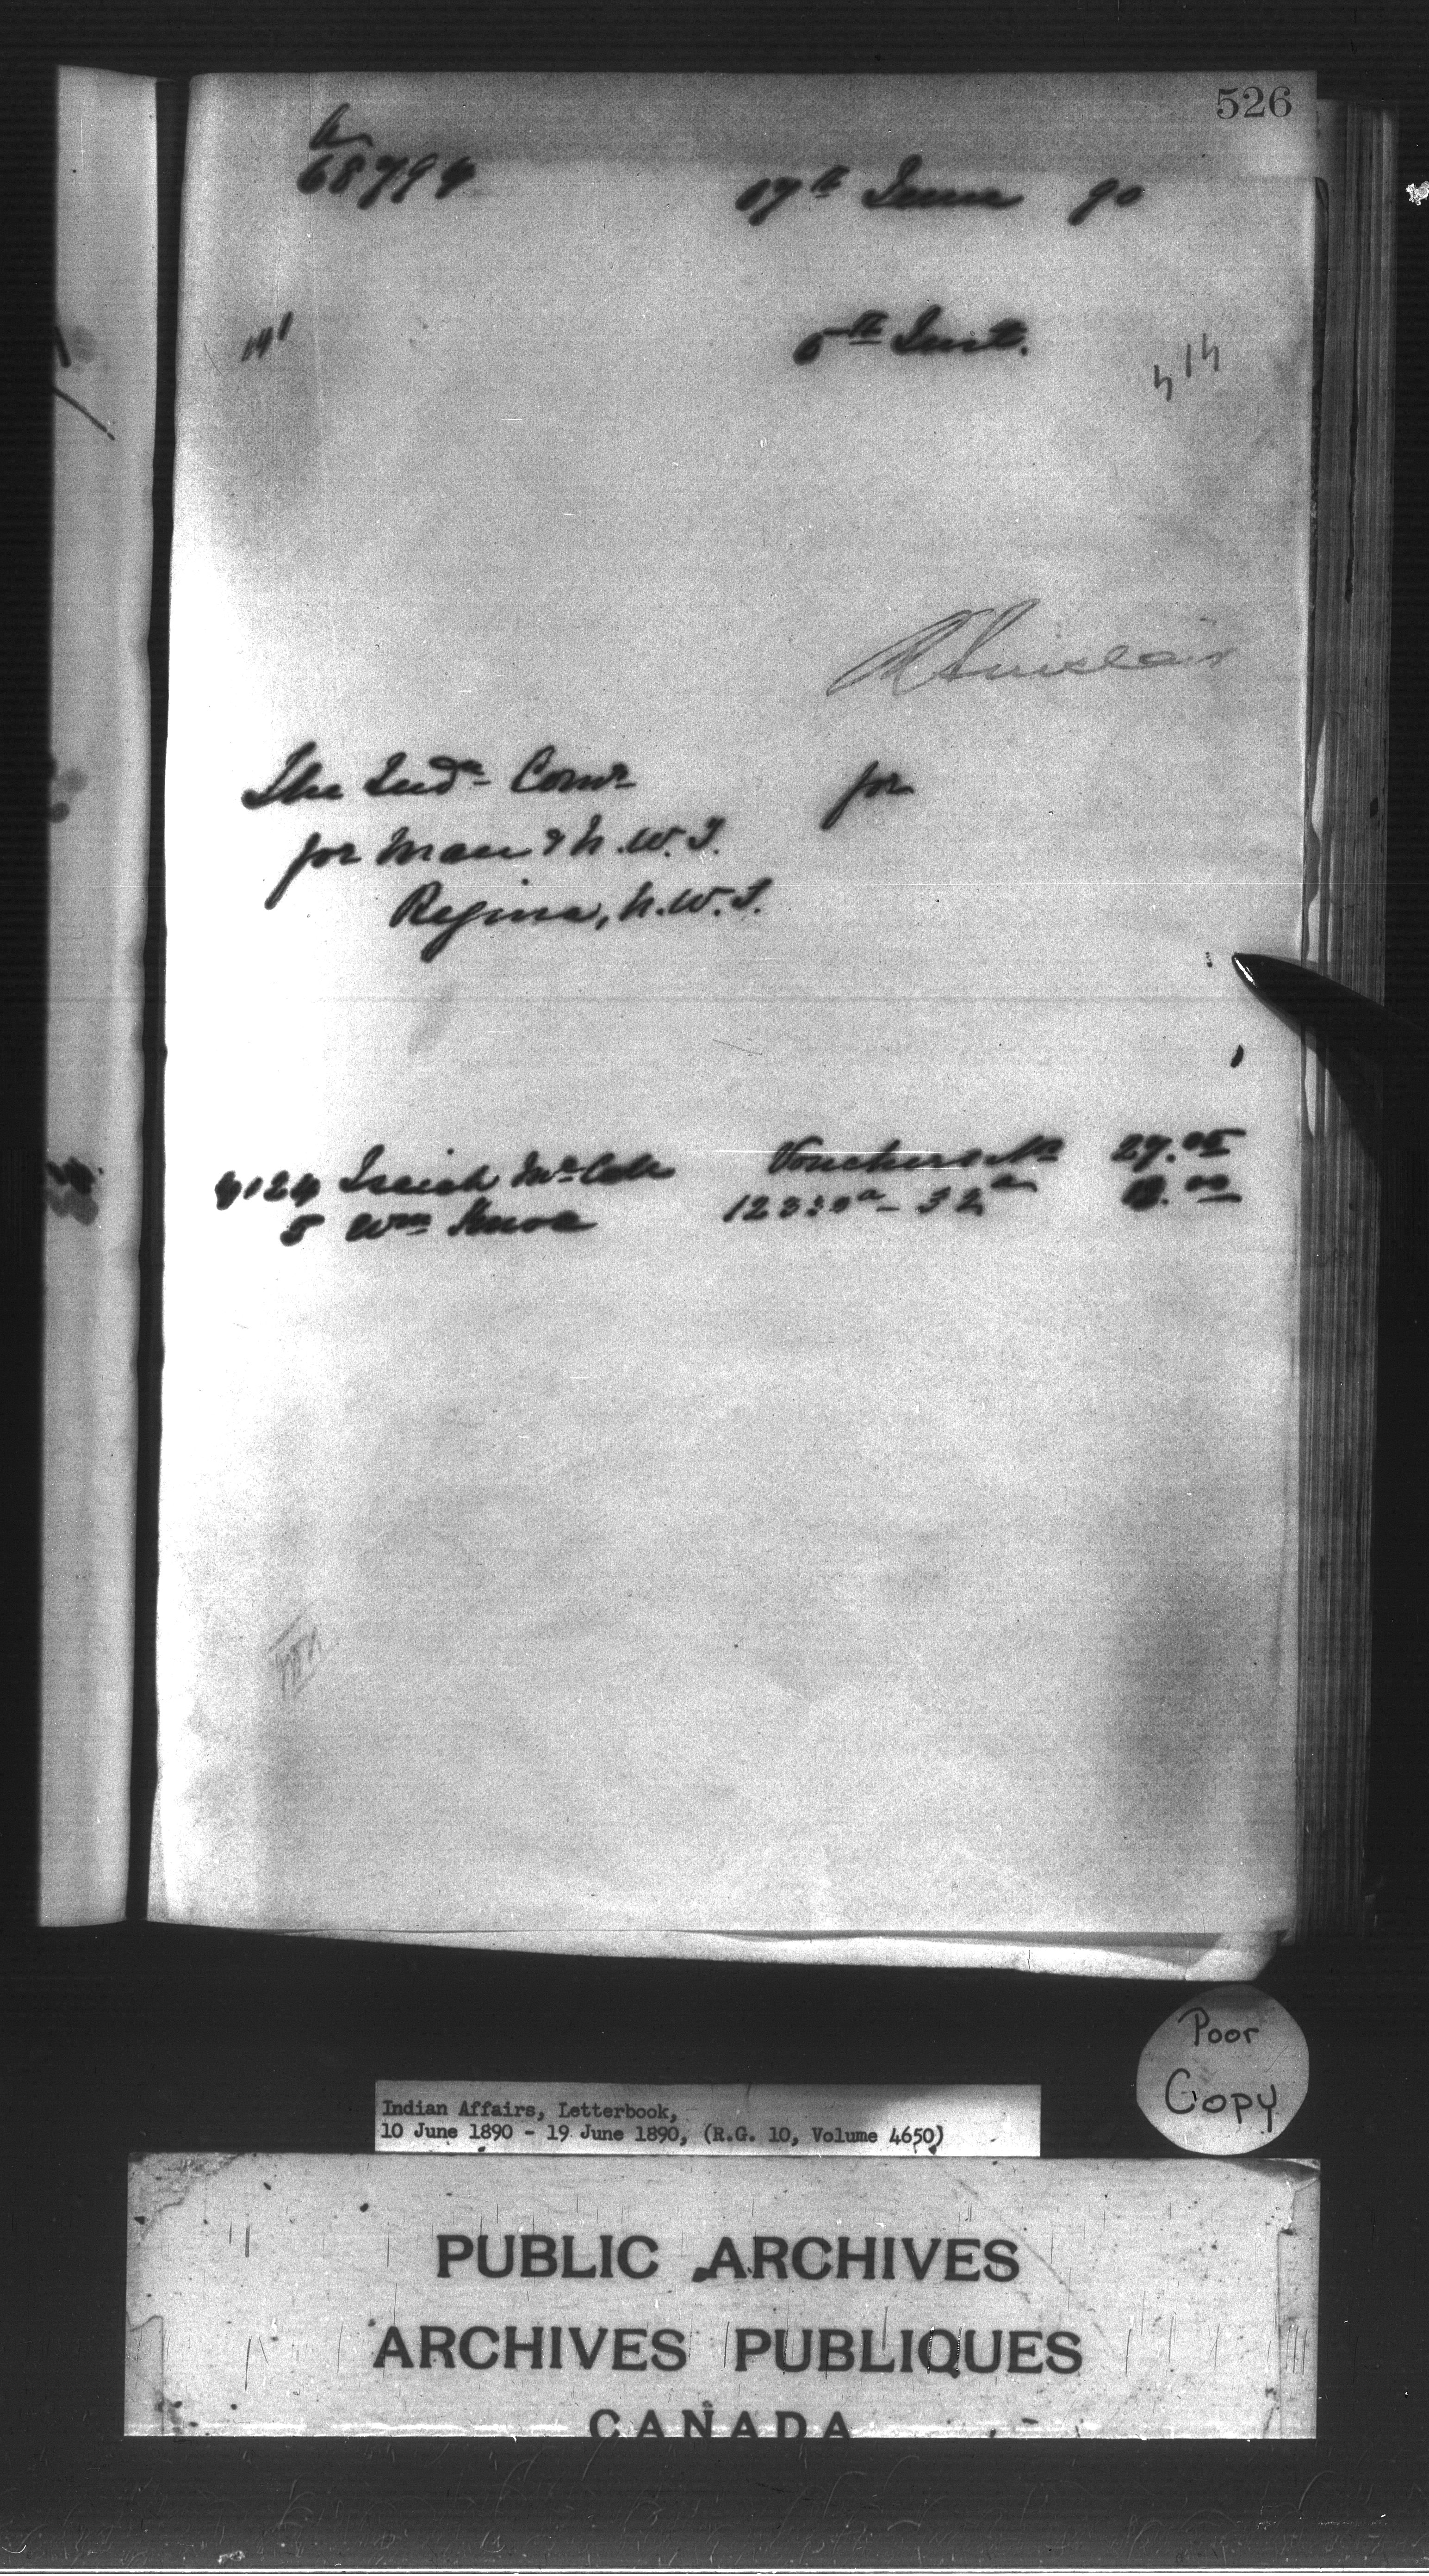 526
68794
17th June 90
5th Inst.
R Sinclair
The Indn Comr for
for Man & N.W.T.
Regina, N.W.T.
4124 Isaiah Vouchers No 27.
5 Wm Knox
Poor
Copy
Indian Affairs, Letterbook,
10 June 1890 - 19 June 1890, (R.G. 10, Volume 4650)
PUBLIC ARCHIVES
ARCHIVES PUBLIQUES
CANADA